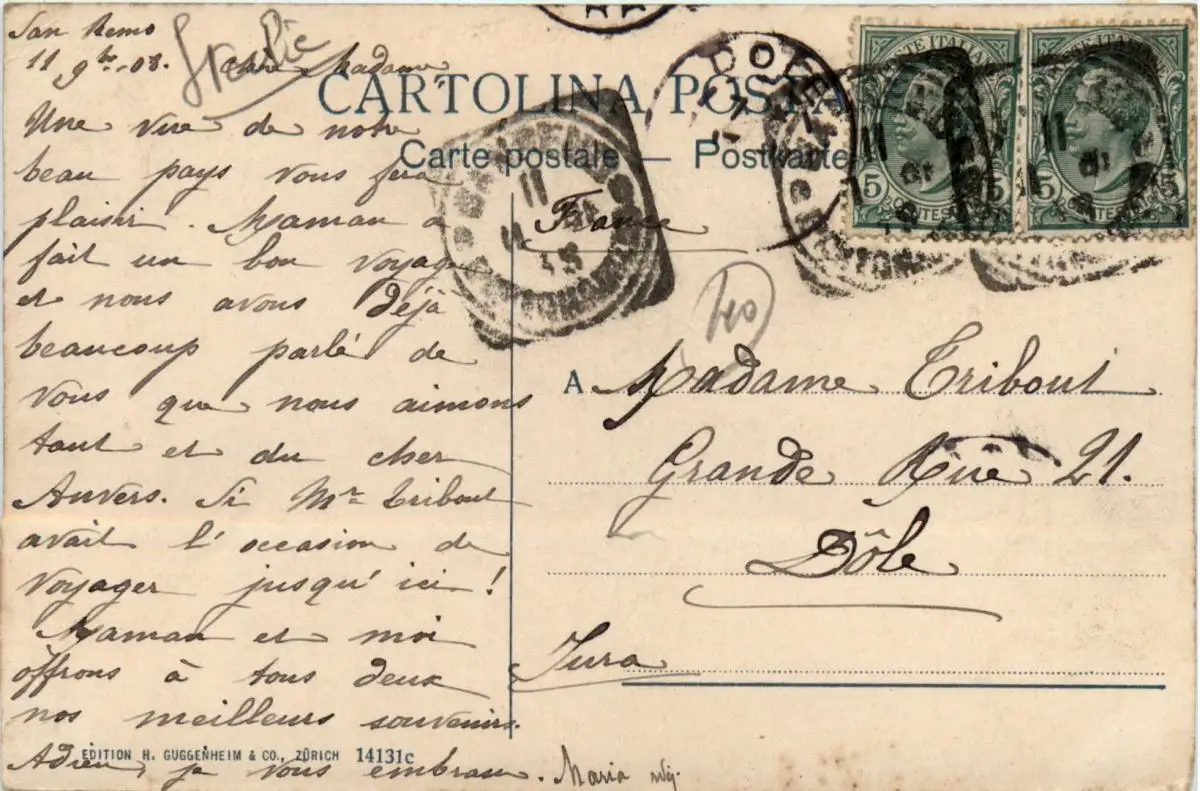 San Remo
11 9bre 08. Chère Madame
Une vue de notre
beau pays vous fera
plaisir. Maman a
fait un bon voyage
et nous avons déjà
beaucoup parlé de
vous que nous aimons
tant et du cher
Anvers. Si Mr Tribout
avait l'occasion de
voyager jusqu'ici!
Maman et moi
offrons à tous deux
nos meilleurs souvenirs.
Adieu, je vous embrasse. Maria
Italie
CARTOLINA POSTA
Carte postale — Postkarte
France
40
A Madame Tribout
Grande Rue 21.
Dôle
Jura
EDITION H. GUGGENHEIM & CO., ZÜRICH 14131c
POSTE ITALIANE
5 5
CENTESIMI
POSTE ITALIANE
5 5
CENTESIMI
11
11
11